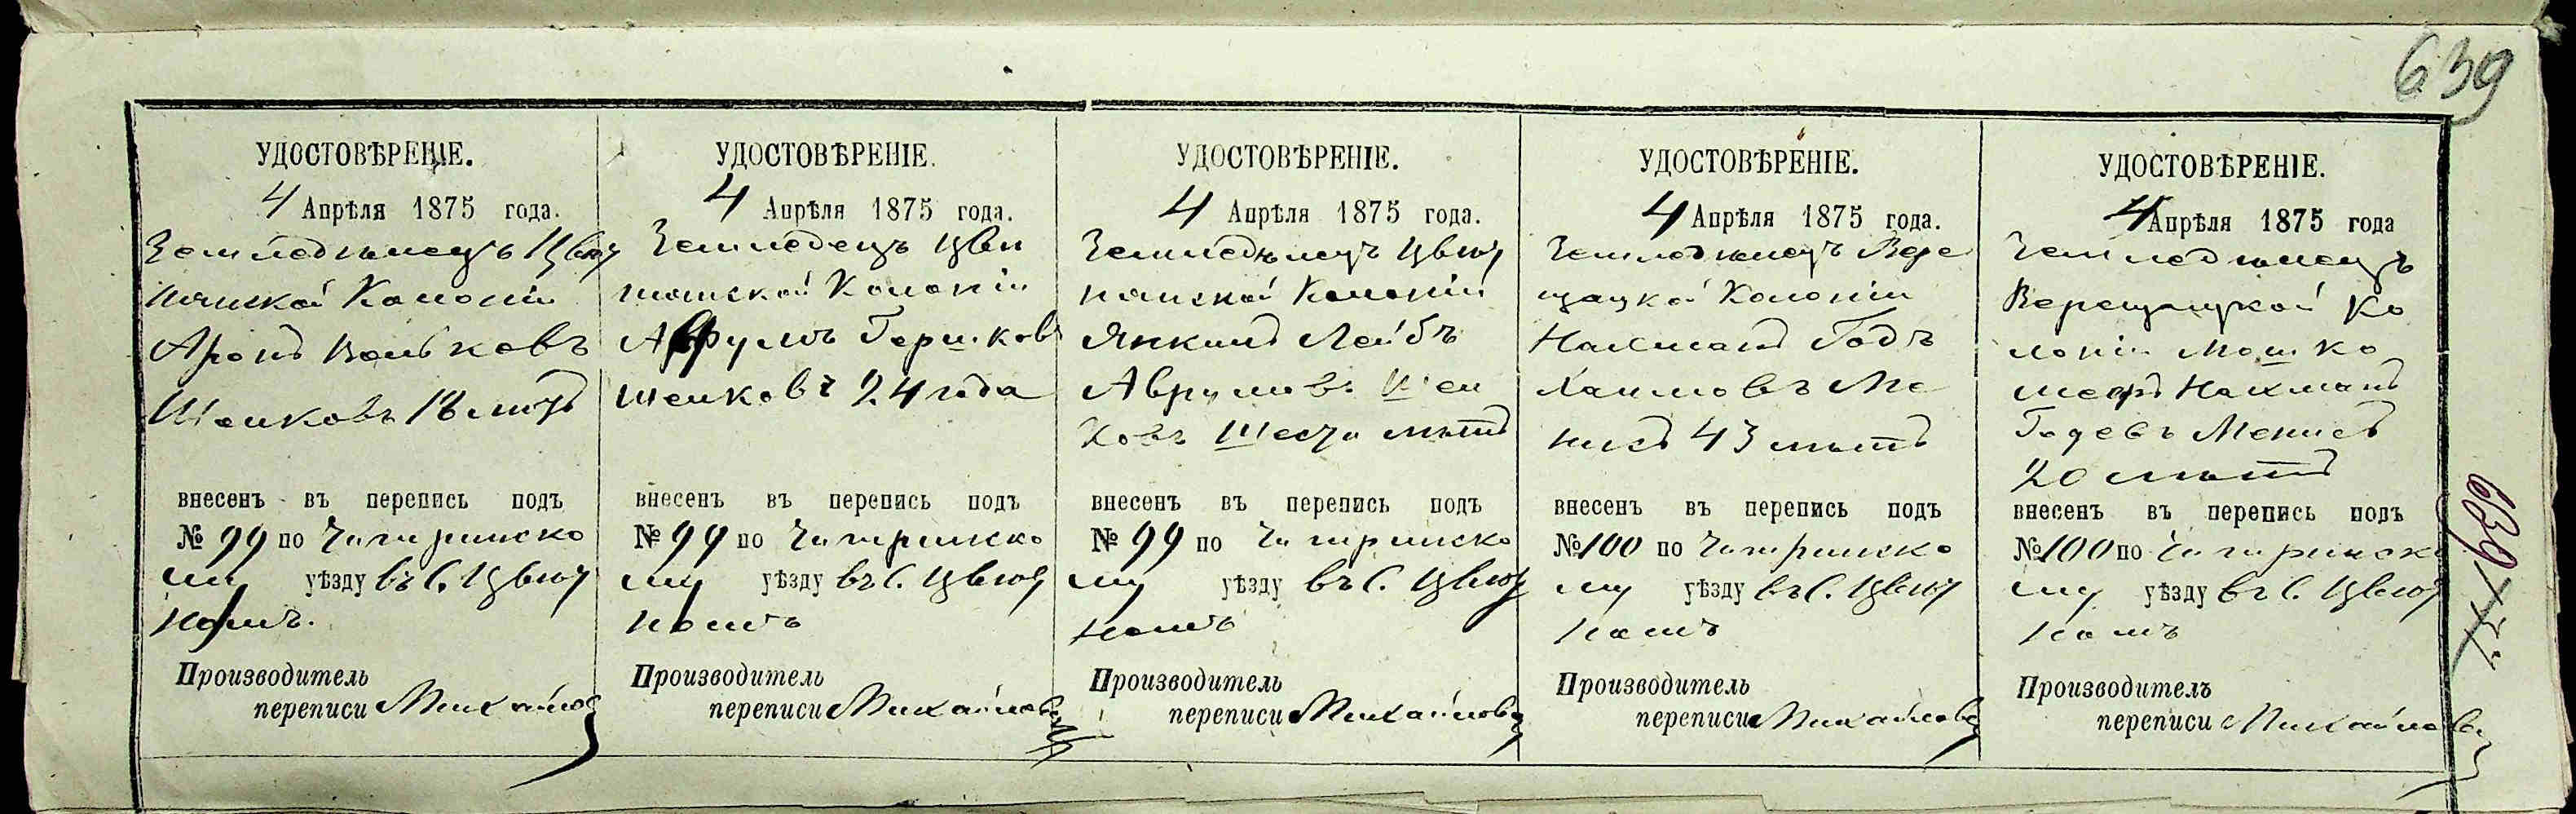 639
УДОСТОВѢРЕНІЕ.
4 Апрѣля 1875 года.
Земледѣлецъ Цвѣт
нянской Колоніи
Аронъ Вольковъ
Шенковъ 18 лѣтъ
внесенъ въ перепись подъ
№ 99 по Чигринско
му уѣзду въ С. Цвѣт
номъ.
Производитель
переписи Михайловъ
УДОСТОВѢРЕНІЕ.
4 Апрѣля 1875 года.
Земледецъ Цвѣт
нянской Колоніи
Аврумъ Гершковъ
Шенковъ 24 года
внесенъ въ перепись подъ
№ 99 по Чигринско
му уѣзду въ С. Цвѣт
номъ
Производитель
переписи Михайловъ
УДОСТОВѢРЕНІЕ.
4 Апрѣля 1875 года.
Земледѣлецъ Цвѣт
нянской Колоніи
Янкилъ Лейбъ
Аврумовъ Шен
ковъ Шести лѣтъ
внесенъ въ перепись подъ
№ 99 по Чигринско
му уѣзду въ С. Цвѣт
номъ
Производитель
переписи Михайловъ
УДОСТОВѢРЕНІЕ.
4 Апрѣля 1875 года.
Земледѣлецъ Вере
щацкой Колоніи
Нахманъ Годъ
Хаимовъ Ме
нисъ 43 лѣтъ
внесенъ въ перепись подъ
№ 100 по Чигринско
му уѣзду въ С. Цвѣт
номъ
Производитель
переписи Михайловъ
УДОСТОВѢРЕНІЕ.
4 Апрѣля 1875 года
Земледѣлецъ
Верещацкой Ко
лоніи Мошко
Нахманъ
Годевъ Менисъ
20 лѣтъ
внесенъ въ перепись подъ
№ 100 по Чигринско
му уѣзду въ С. Цвѣт
номъ
Производитель
переписи Михайловъ
639